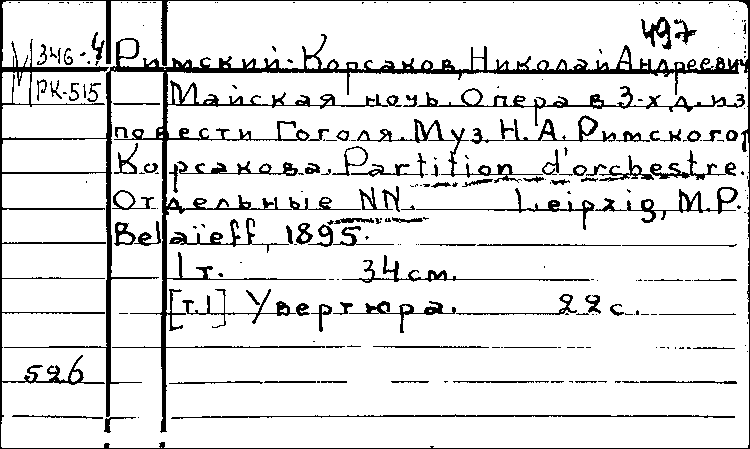 497
М 346-4 Римский-Корсаков, Николай Андреевич
РК-515 Майская ночь. Опера в 3-х д. из
повести Гоголя. Муз. Н.А. Римского-
Корсакова. Partition d'orchestre.
Отдельные NN. Leipzig, M.P.
Belaïeff, 1895.
1 т. 34 см.
[т.1] Увертюра. 22 с.
526